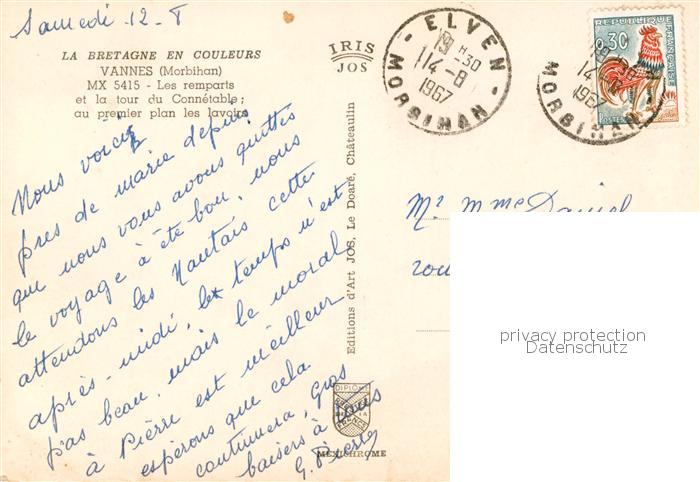 Samedi 12-8
LA BRETAGNE EN COULEURS
VANNES (Morbihan)
MX 5415 - Les remparts
et la tour du Connétable;
au premier plan les lavoirs
IRIS
JOS
Nous voici
près de marie depuis
que nous vous avons quittés
le voyage à été bon, nous
attendons les Nantais cette
après-midi, le temps n'est
pas beau, mais le moral
à Pierre est meilleur
espérons que cela
continuera, Gros
baisers à tous
G. Pierre
Editions d'Art JOS, Le Doaré, Châteaulin
DIPLOME
FRANCE
MEXICHROME
ELVEN
19 H 30
14-8
1967
MORBIHAN
REPUBLIQUE FRANÇAISE
0,30
POSTES
14-8
1967
MORBIHAN
Mr Mme Daniel
privacy protection
Datenschutz